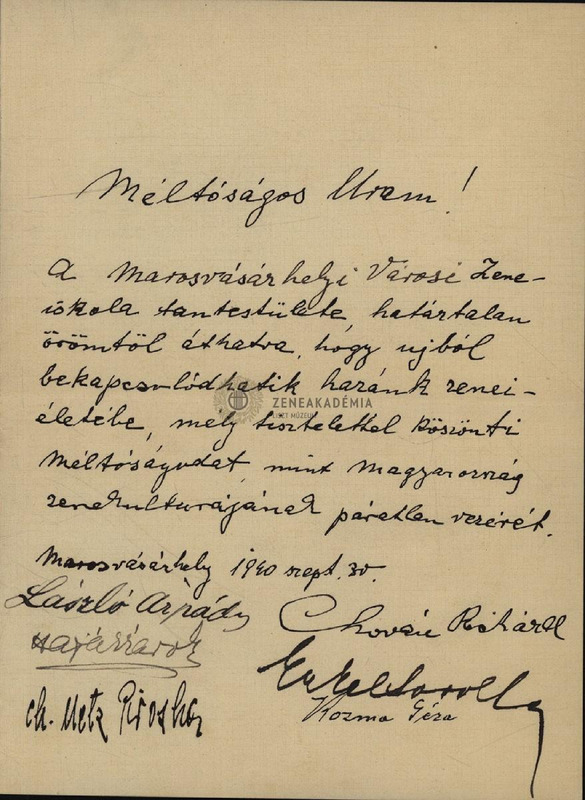 Méltóságos Uram!
A Marosvásárhelyi Városi Zene-
iskola tantestülete, határtalan
örömtől áthatva, hogy ujból
bekapcsolódhatik hazánk zenei-
életébe, mély tisztelettel köszönti
Méltóságodat, mint Magyarország
zenekulturájának páratlan vezérét.
ZENEAKADÉMIA
LISZT MÚZEUM
Marosvásárhely 1940 szept. 30.
László Árpád
Chován Richárd
Erkel Sarolta
Kozma Géza
ch. Metz Piroska